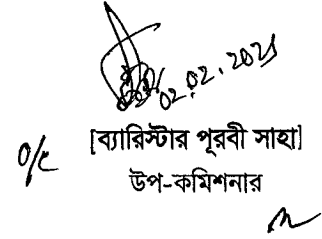 02.02.2021
o/c
[ব্যারিস্টার পূরবী সাহা]
উপ-কমিশনার